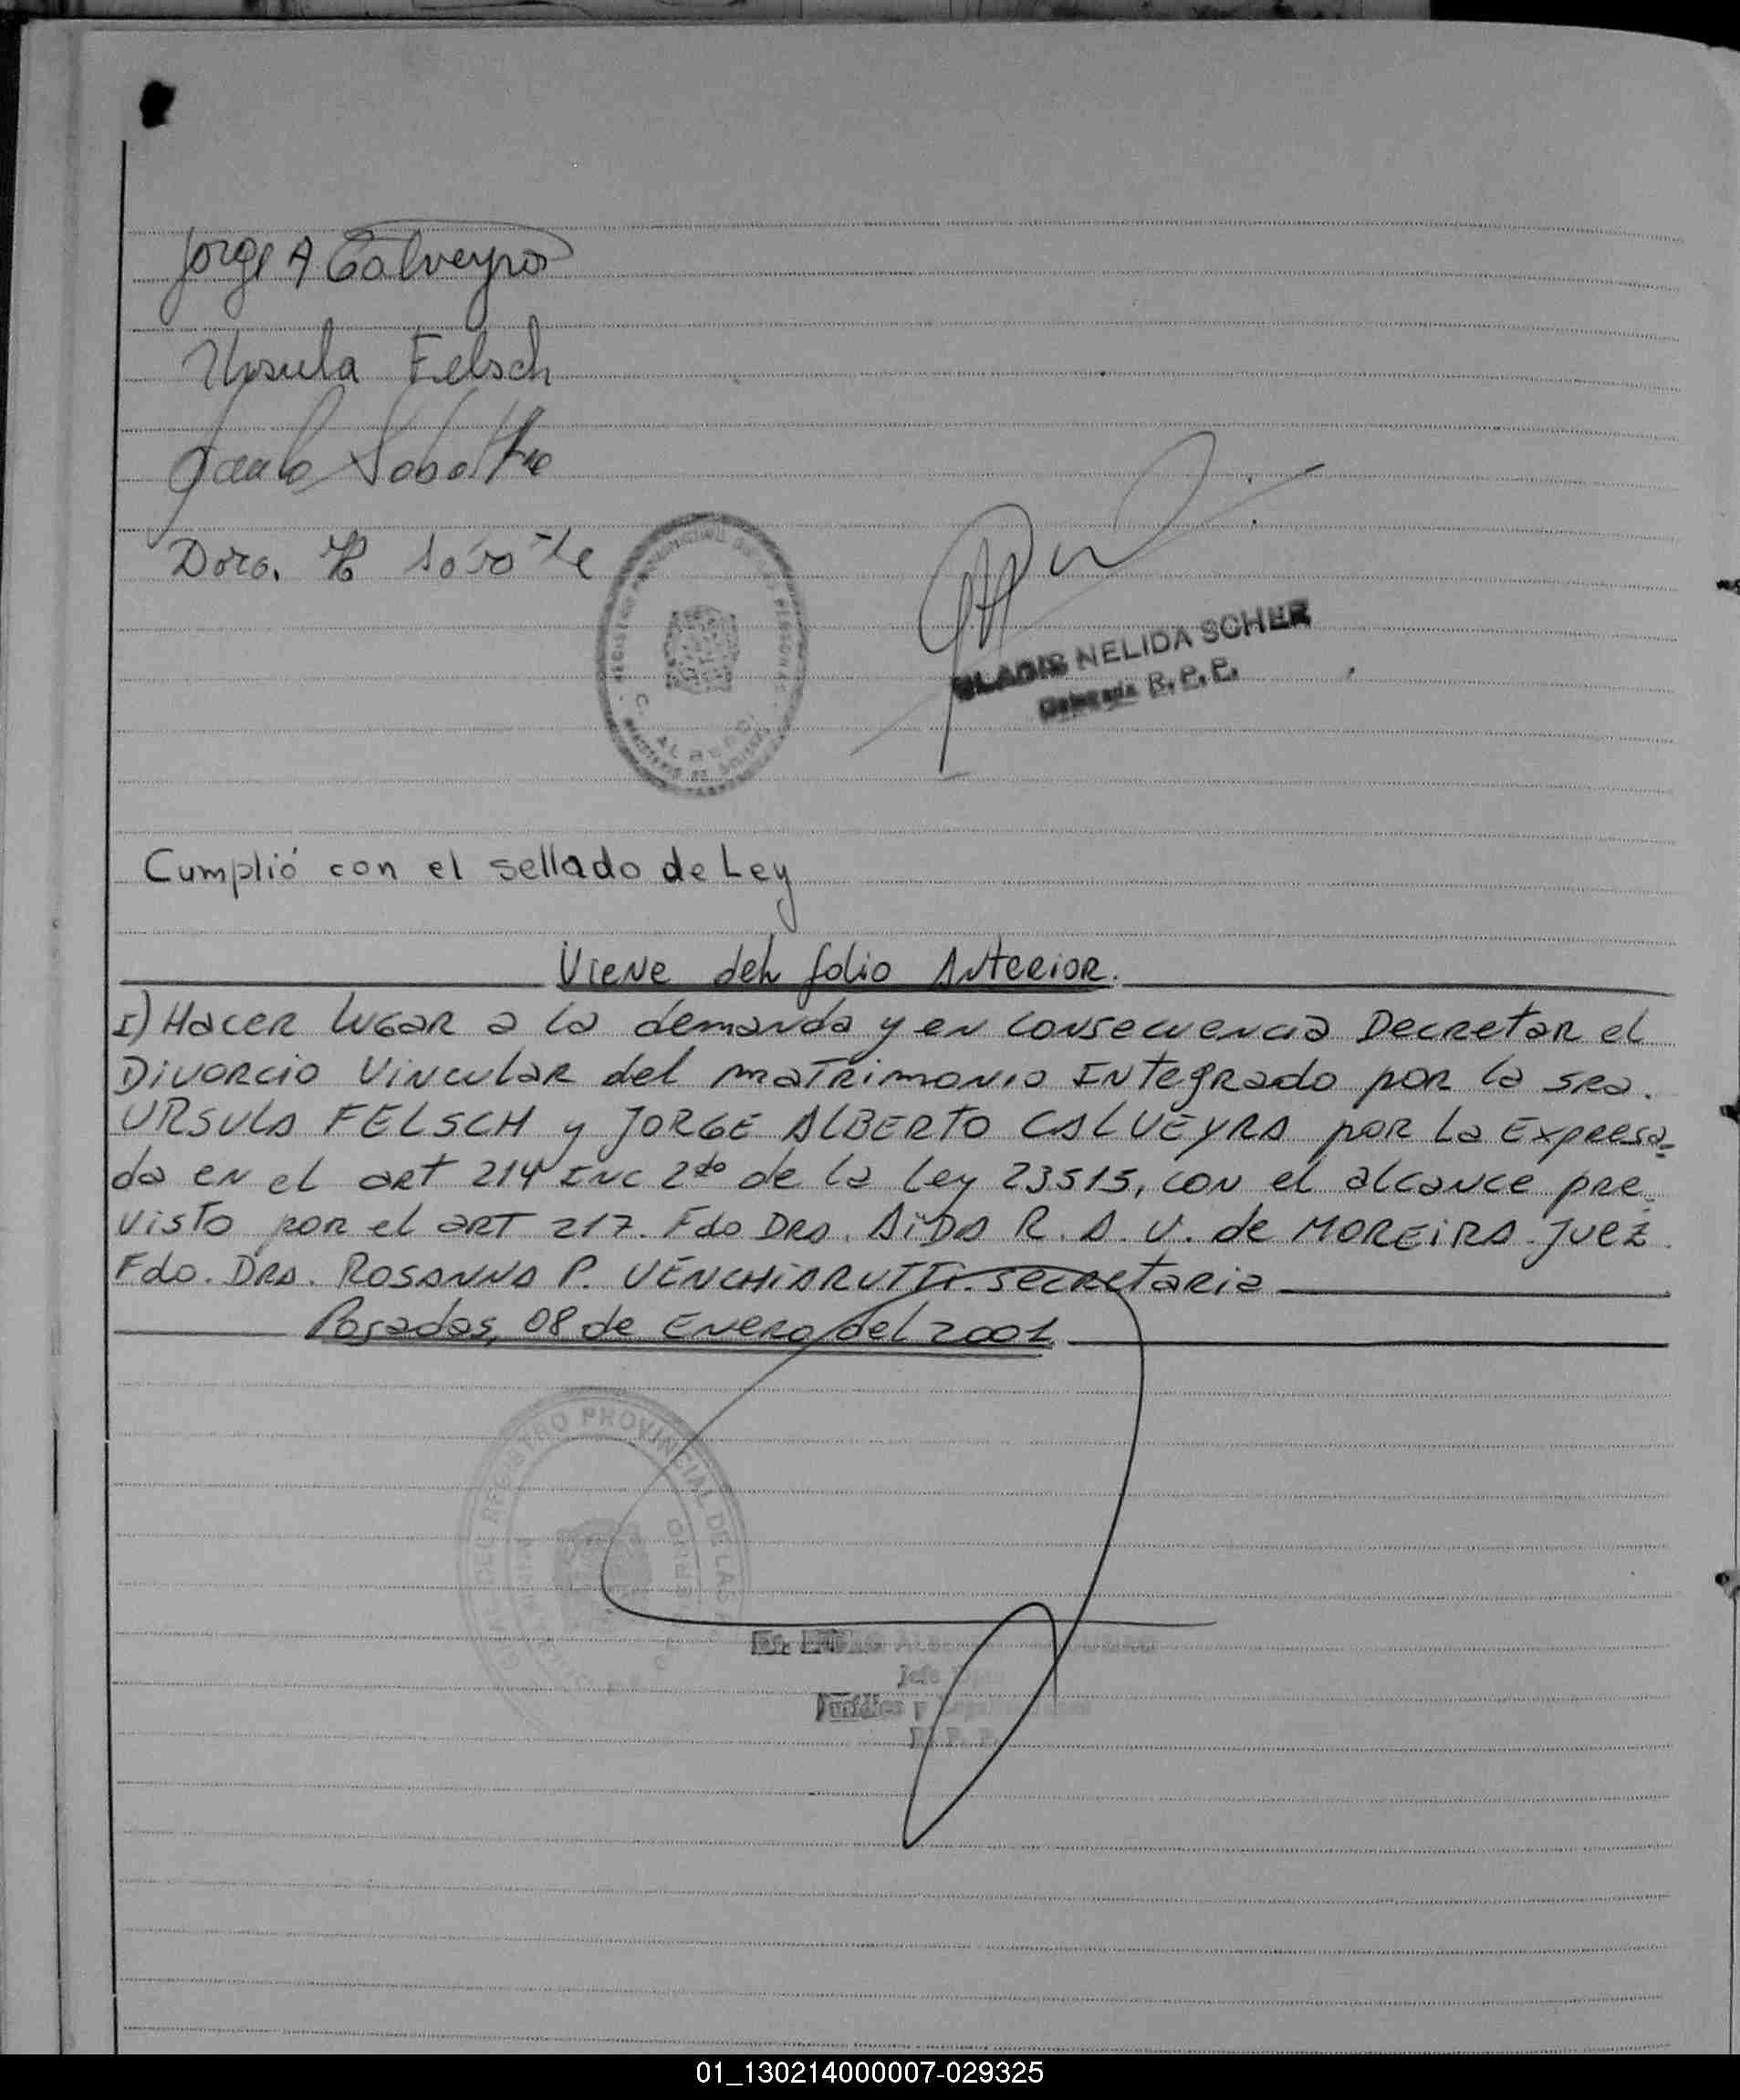 Jorge A Calveyra
Ursula Felsch
Dora. H
REGISTRO PROVINCIAL DE LAS PERSONAS
C.
ALBERDI
GLADIS NELIDA SCHER
Delegada R. P. P.
Cumplió con el sellado de Ley
Viene del folio Anterior.
I) Hacer lugar a la demanda y en consecuencia Decretar el
Divorcio Vincular del matrimonio Integrado por la sra.
URSULA FELSCH y JORGE ALBERTO CALVEYRA por la Expresa-
da en el art 214 inc 2do de la ley 23515, con el alcance pre-
visto por el art 217. Fdo Dra. AiDA R. A. V. de MOREiRA. Juez.
Fdo. Dra. ROSANNA P. VENCHIARUTTi. secretaria
Posadas, 08 de Enero del 2001.
REGISTRO PROVINCIAL DE LAS
Jefe
Jurídico y
R. P. P.
01_130214000007-029325